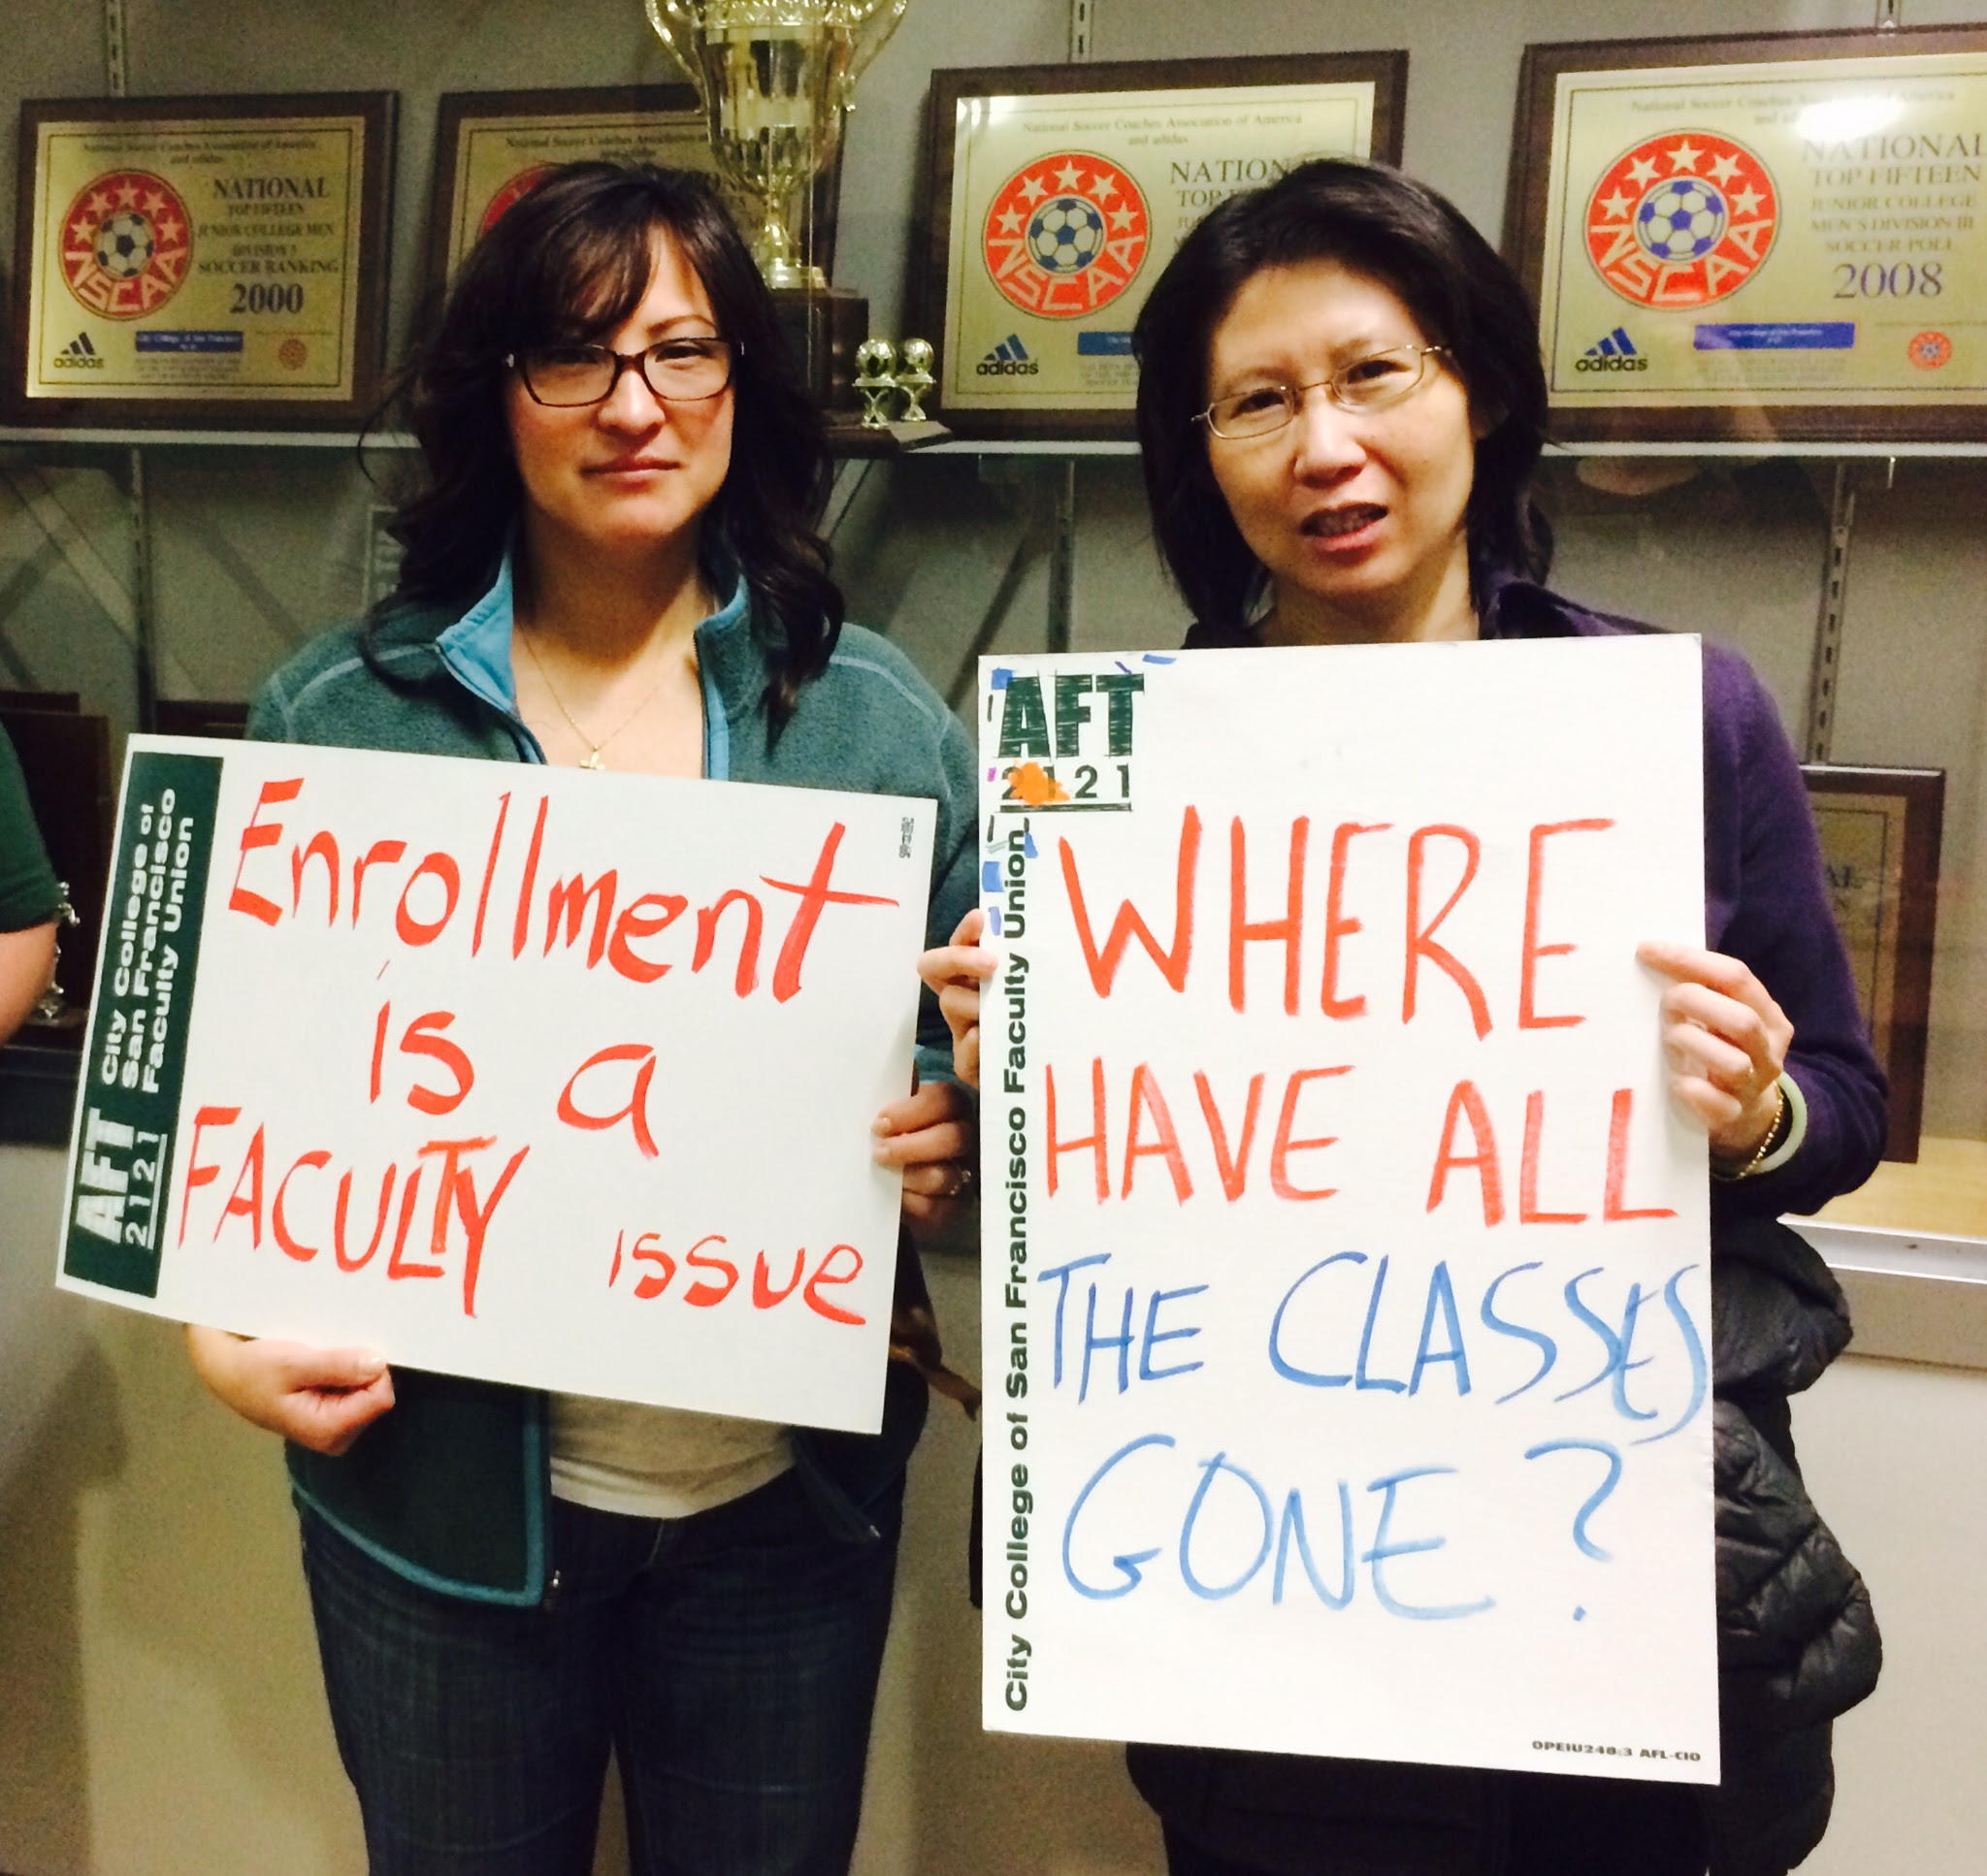 National Soccer Coaches Association of America
and adidas
NATIONAL
TOP FIFTEEN
JUNIOR COLLEGE MEN
SOCCER RANKING
2000
NSCAA
adidas
City College of San Francisco
National Soccer Coaches Association of
National Soccer Coaches Association of America
and adidas
NATIONAL
NSCAA
adidas
National Soccer Coaches of America
NATIONAL
TOP FIFTEEN
JUNIOR COLLEGE
MEN'S DIVISION III
SOCCER POLL
2008
NSCAA
adidas
City College of San Francisco
AFT
2121
City College of
San Francisco
Faculty Union
Enrollment
is a
FACULTY issue
AFT
2121
City College of San Francisco Faculty Union
WHERE
HAVE ALL
THE CLASSES
GONE ?
OPEIU240:3 AFL-CIO